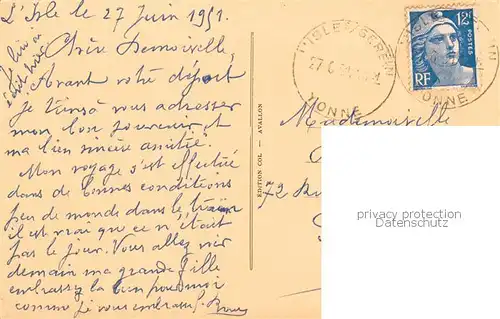 L'Isle le 27 Juin 1951.
Chère Demoiselle,
Avant votre départ
je tiens à vous adresser
mon bon souvenir et
ma bien sincère amitié.
Mon voyage s'est effectué
dans de bonnes conditions
peu de monde dans le train
il est vrai que ce n'était
pas le jour. Vous allez voir
demain ma grande fille
embrassez la bien pour moi
comme je vous embrasse.
EDITION COL - AVALLON
L'ISLE S/ SEREIN
YONNE
12F
POSTES
RF
Mademoiselle
72 Rue
privacy protection
Datenschutz